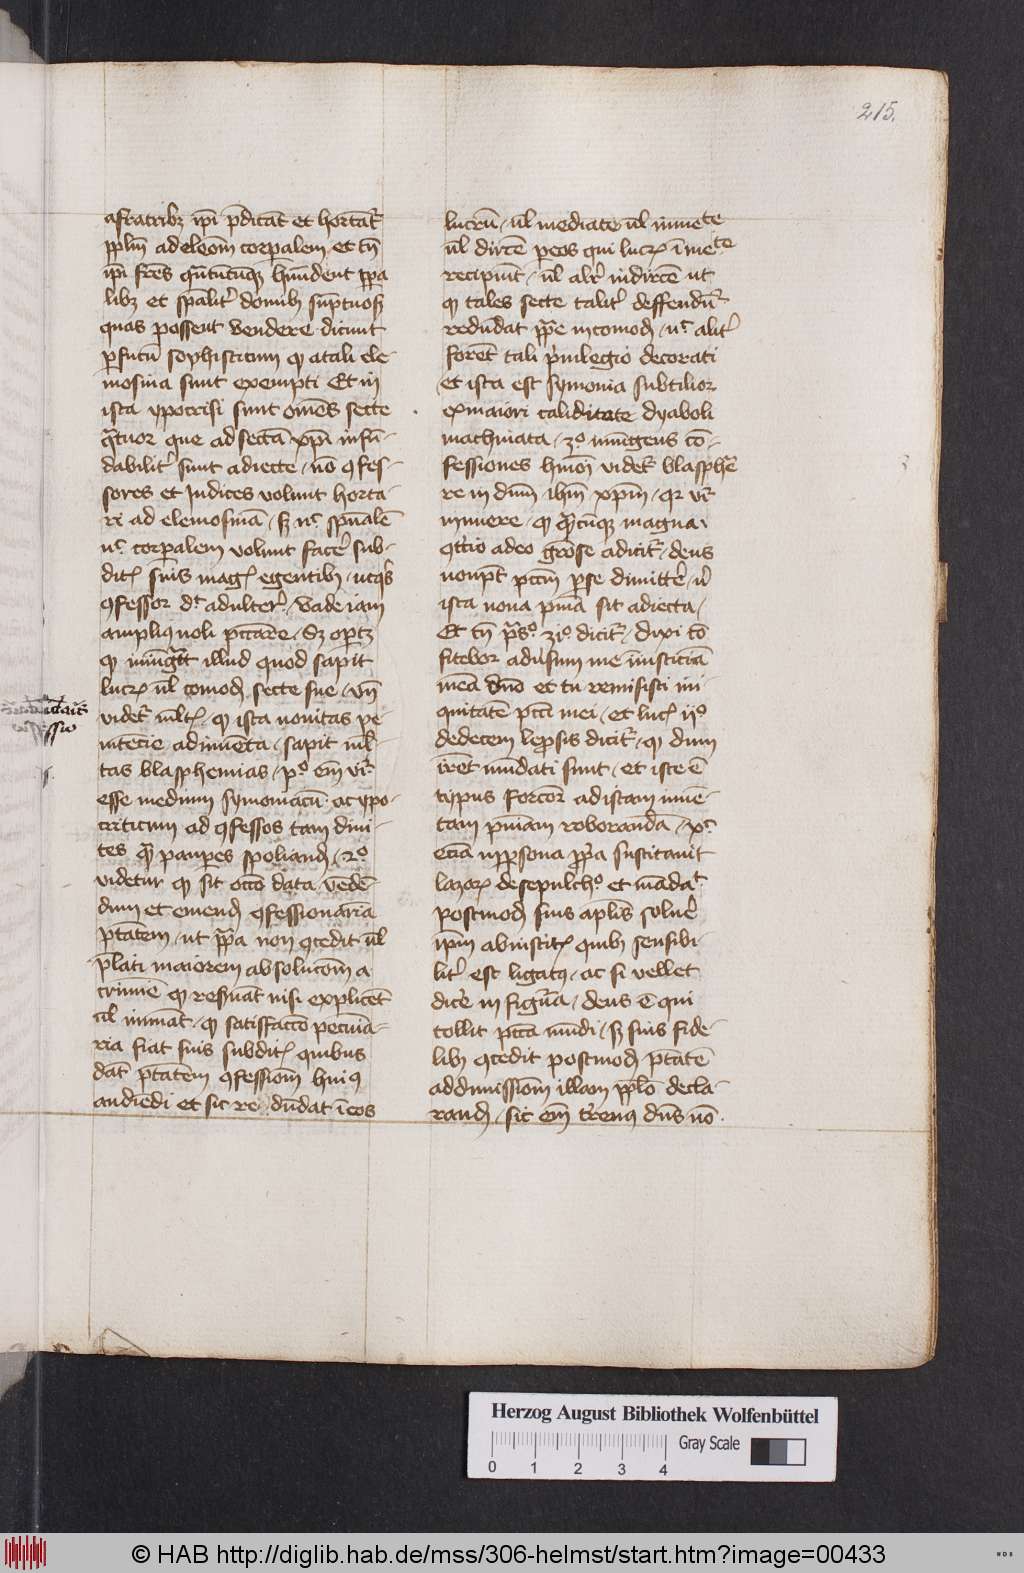 215.
a fratribꝫ ip̄i p̄dicāt et hortāt᷑
pp̄lm̄ ad eleōm corpalem et tn̄
ip̄i fr̄es q̄ntutūqꝫ hn̄dent pp̄a
libꝫ et sp̄alit᷑ domibꝫ sūptuosꝫ
quas possent vendere dicunt
p̄futū sophisticum ꝙ a tali ele
mosina sunt exempti Et in
ista ypocrisi sunt om̄es secte
q̄tuor que ad sectā xp̄i infū-
dabilit᷑ sunt adiecte nō ꝯfes-
sores et Judices volunt horta-
ri ad elemosinā sꝫ nͨ spūalē
nͨ corpalem volunt facē sub-
dit᷑ suis mag᷑ egentibꝫ utqꝫ
ꝯfessor dͭ adulter᷑ Vade iam
ampliꝰ noli peccāre Sꝫ oportꝫ
ꝙ iniūgāt illud quod sapit
lucꝝ ul̄ comodꝫ secte sue vn̄
videt᷑ ml̄tꝭ ꝙ ista nouitas pe-
nitencie adinuēta sapit ml̄-
tas blasphemias pͦ em̄ vr̄
esse medium symoniacū ac ypo-
criticum ad ꝯfessos tam diui-
tes q̄ꝫ paupes spoliandꝫ 2ͦ
videtur ꝙ sit occō data vēdē-
dum et emendꝫ ꝯfessionariā
p̄tātem ut pp̄a non ꝯcedit ul̄
p̄lati maiorem absolucōm a
crimīe ꝙ resuāt nisi explicēt
ul̄ innuāt ꝙ satisfaccō pecuniā-
ria fiat suis subditꝭ quibus
dāt p̄tātem ꝯfessiom̄ huiꝰ
audiēdi et sic re dūdat ī eos
lucrū ul̄ mediate ul̄ inmete
ul̄ dirc̄e p eos qui lucꝝ īmete
recipiūt ul̄ alr̄ indirc̄e ut
ꝙ tales secte talit᷑ deffendūt᷑
redūdat pp̄e incomodꝫ nͨ alit᷑
forēt tali p̄uilegio decorati
et ista est symonia subtilior
ex maiori caliditate dyaboli
machinata 3ͦ iniūgens cō-
fessiones hmōi videt᷑ blasphē-
re in dnm̄ ihm̄ xp̄m qr vr̄
innuere ꝙ q̄ꝫcūqꝫ magna
ꝯtrio adeo grōse adicit᷑ deus
nonpt̄ pctm̄ p se dimitte᷑ n̄
ista noua pn̄ia sit adiecta
Et tn̄ ps̄ͦ 31ͦ dicit᷑ dixi cō
fitebor aduersum me iniusticiā
meā dn̄o et tu remisisti ini
quitatē pcc̄i mei et luc᷑ 17ͦ
de decem lepsis dicit᷑ ꝙ dum
irēt mūdati sunt et iste ē
typus forcior ad istam inuē-
tam pn̄iam roborandā xͨ
eciā in ppsona pp̄a suscitauit
lazaꝝ de sepulchͦ et mādaͭ
postmodꝫ suis apl̄is soluē
ip̄m ab instit᷑ quibꝫ sensibi
lit᷑ est ligatꝰ ac si vellet
dice᷑ in figūa deus ē qui
tollit pcc̄a mūdi sꝫ suis fide-
libꝫ ꝯcedit postmodꝫ p̄tātē
ad dimissiom̄ illam pp̄lo decla-
randꝫ sic em̄ t᷑renꝰ dn̄s nō
Herzog August Bibliothek Wolfenbüttel
Gray Scale
0 1 2 3 4
© HAB http://diglib.hab.de/mss/306-helmst/start.htm?image=00433